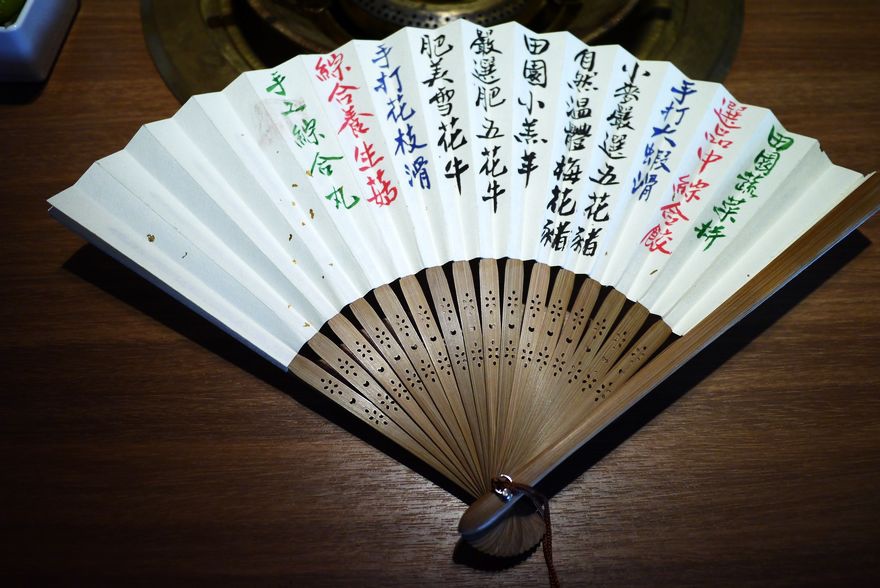 田園蔬菜拼
選品中綜合餃
手打大蝦滑
小麥嚴選五花豬
自然溫體梅花豬
田園小羔羊
嚴選肥五花牛
肥美雪花牛
手打花枝滑
綜合養生菇
手工綜合丸